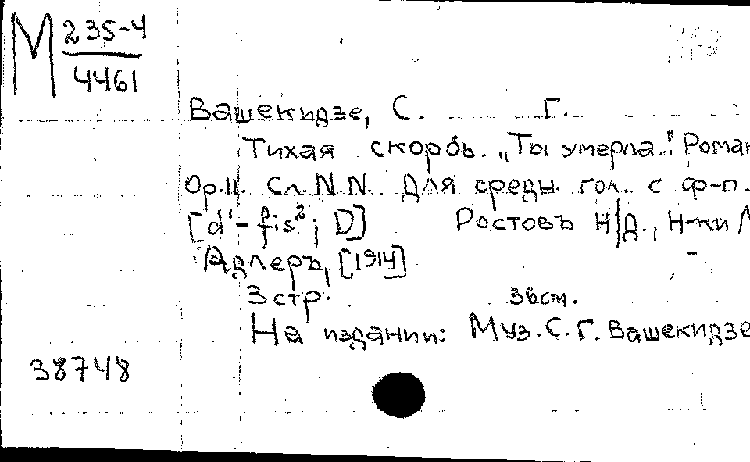 М 235-4
4461
Вашекидзе, С. Г.
Тихая скорбь. „Ты умерла.." Роман
Op.11. Сл. N.N. Для средн. гол. с ф-п.
[d¹-fis²; D] Ростовъ н/Д., Н-ки
Адлеръ, [1914]
3 стр. 36 см.
На издании: Муз. С. Г. Вашекидзе
38748